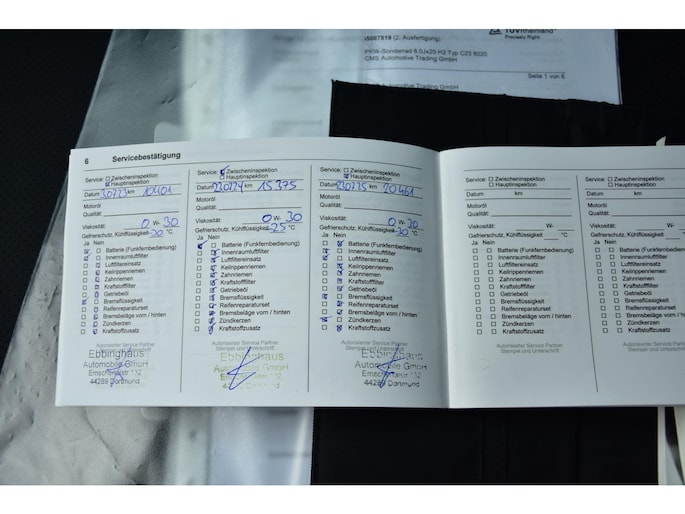 (2. Ausfertigung)
TÜVRheinland
Precisely Right.
PKW-Sonderrad 8.0Jx20 H2 Typ C23 8020
CMS Automotive Trading GmbH
Seite 1 von 6
Automotive Trading GmbH
6 Servicebestätigung
Service: Zwischeninspektion
Hauptinspektion
Datum km 10401
Motoröl
Qualität:
Viskosität: 0 W- 30
Gefrierschutz, Kühlflüssigkeit °C
Ja Nein
Batterie (Funkfernbedienung)
Innenraumluftfilter
Luftfiltereinsatz
Keilrippenriemen
Zahnriemen
Kraftstofffilter
Getriebeöl
Bremsflüssigkeit
Reifenreparaturset
Bremsbeläge vorn / hinten
Zündkerzen
Kraftstoffzusatz
Autorisierter Service Partner
Stempel und Unterschrift
Ebbinghaus
Automobile GmbH
44289 Dortmund
Service: Zwischeninspektion
Hauptinspektion
Datum 230724 km 15375
Motoröl
Qualität:
Viskosität: 0 W- 30
Gefrierschutz, Kühlflüssigkeit -25 °C
Ja Nein
Batterie (Funkfernbedienung)
Innenraumluftfilter
Luftfiltereinsatz
Keilrippenriemen
Zahnriemen
Kraftstofffilter
Getriebeöl
Bremsflüssigkeit
Reifenreparaturset
Bremsbeläge vorn / hinten
Zündkerzen
Kraftstoffzusatz
Autorisierter Service Partner
Stempel und Unterschrift
Ebbinghaus
Automobile GmbH
44289 Dortmund
Service: Zwischeninspektion
Hauptinspektion
Datum 230725 km 20461
Motoröl
Qualität:
Viskosität: 0 W- 30
Gefrierschutz, Kühlflüssigkeit °C
Ja Nein
Batterie (Funkfernbedienung)
Innenraumluftfilter
Luftfiltereinsatz
Keilrippenriemen
Zahnriemen
Kraftstofffilter
Getriebeöl
Bremsflüssigkeit
Reifenreparaturset
Bremsbeläge vorn / hinten
Zündkerzen
Kraftstoffzusatz
Autorisierter Service Partner
Stempel und Unterschrift
Ebbinghaus
Automobile GmbH
44289 Dortmund
Service: Zwischeninspektion
Hauptinspektion
Datum km
Motoröl
Qualität:
Viskosität: W-
Gefrierschutz, Kühlflüssigkeit °C
Ja Nein
Batterie (Funkfernbedienung)
Innenraumluftfilter
Luftfiltereinsatz
Keilrippenriemen
Zahnriemen
Kraftstofffilter
Getriebeöl
Bremsflüssigkeit
Reifenreparaturset
Bremsbeläge vorn / hinten
Zündkerzen
Kraftstoffzusatz
Autorisierter Service Partner
Stempel und Unterschrift
Service: Zwischeninspektion
Hauptinspektion
Datum km
Motoröl
Qualität:
Viskosität:
Gefrierschutz, Kühlflüssigkeit
Ja Nein
Batterie (Funkfernbedienung)
Innenraumluftfilter
Luftfiltereinsatz
Keilrippenriemen
Zahnriemen
Kraftstofffilter
Getriebeöl
Bremsflüssigkeit
Reifenreparaturset
Bremsbeläge vorn /
Zündkerzen
Kraftstoffzusatz
Autorisierter Service
Stempel und Unterschrift